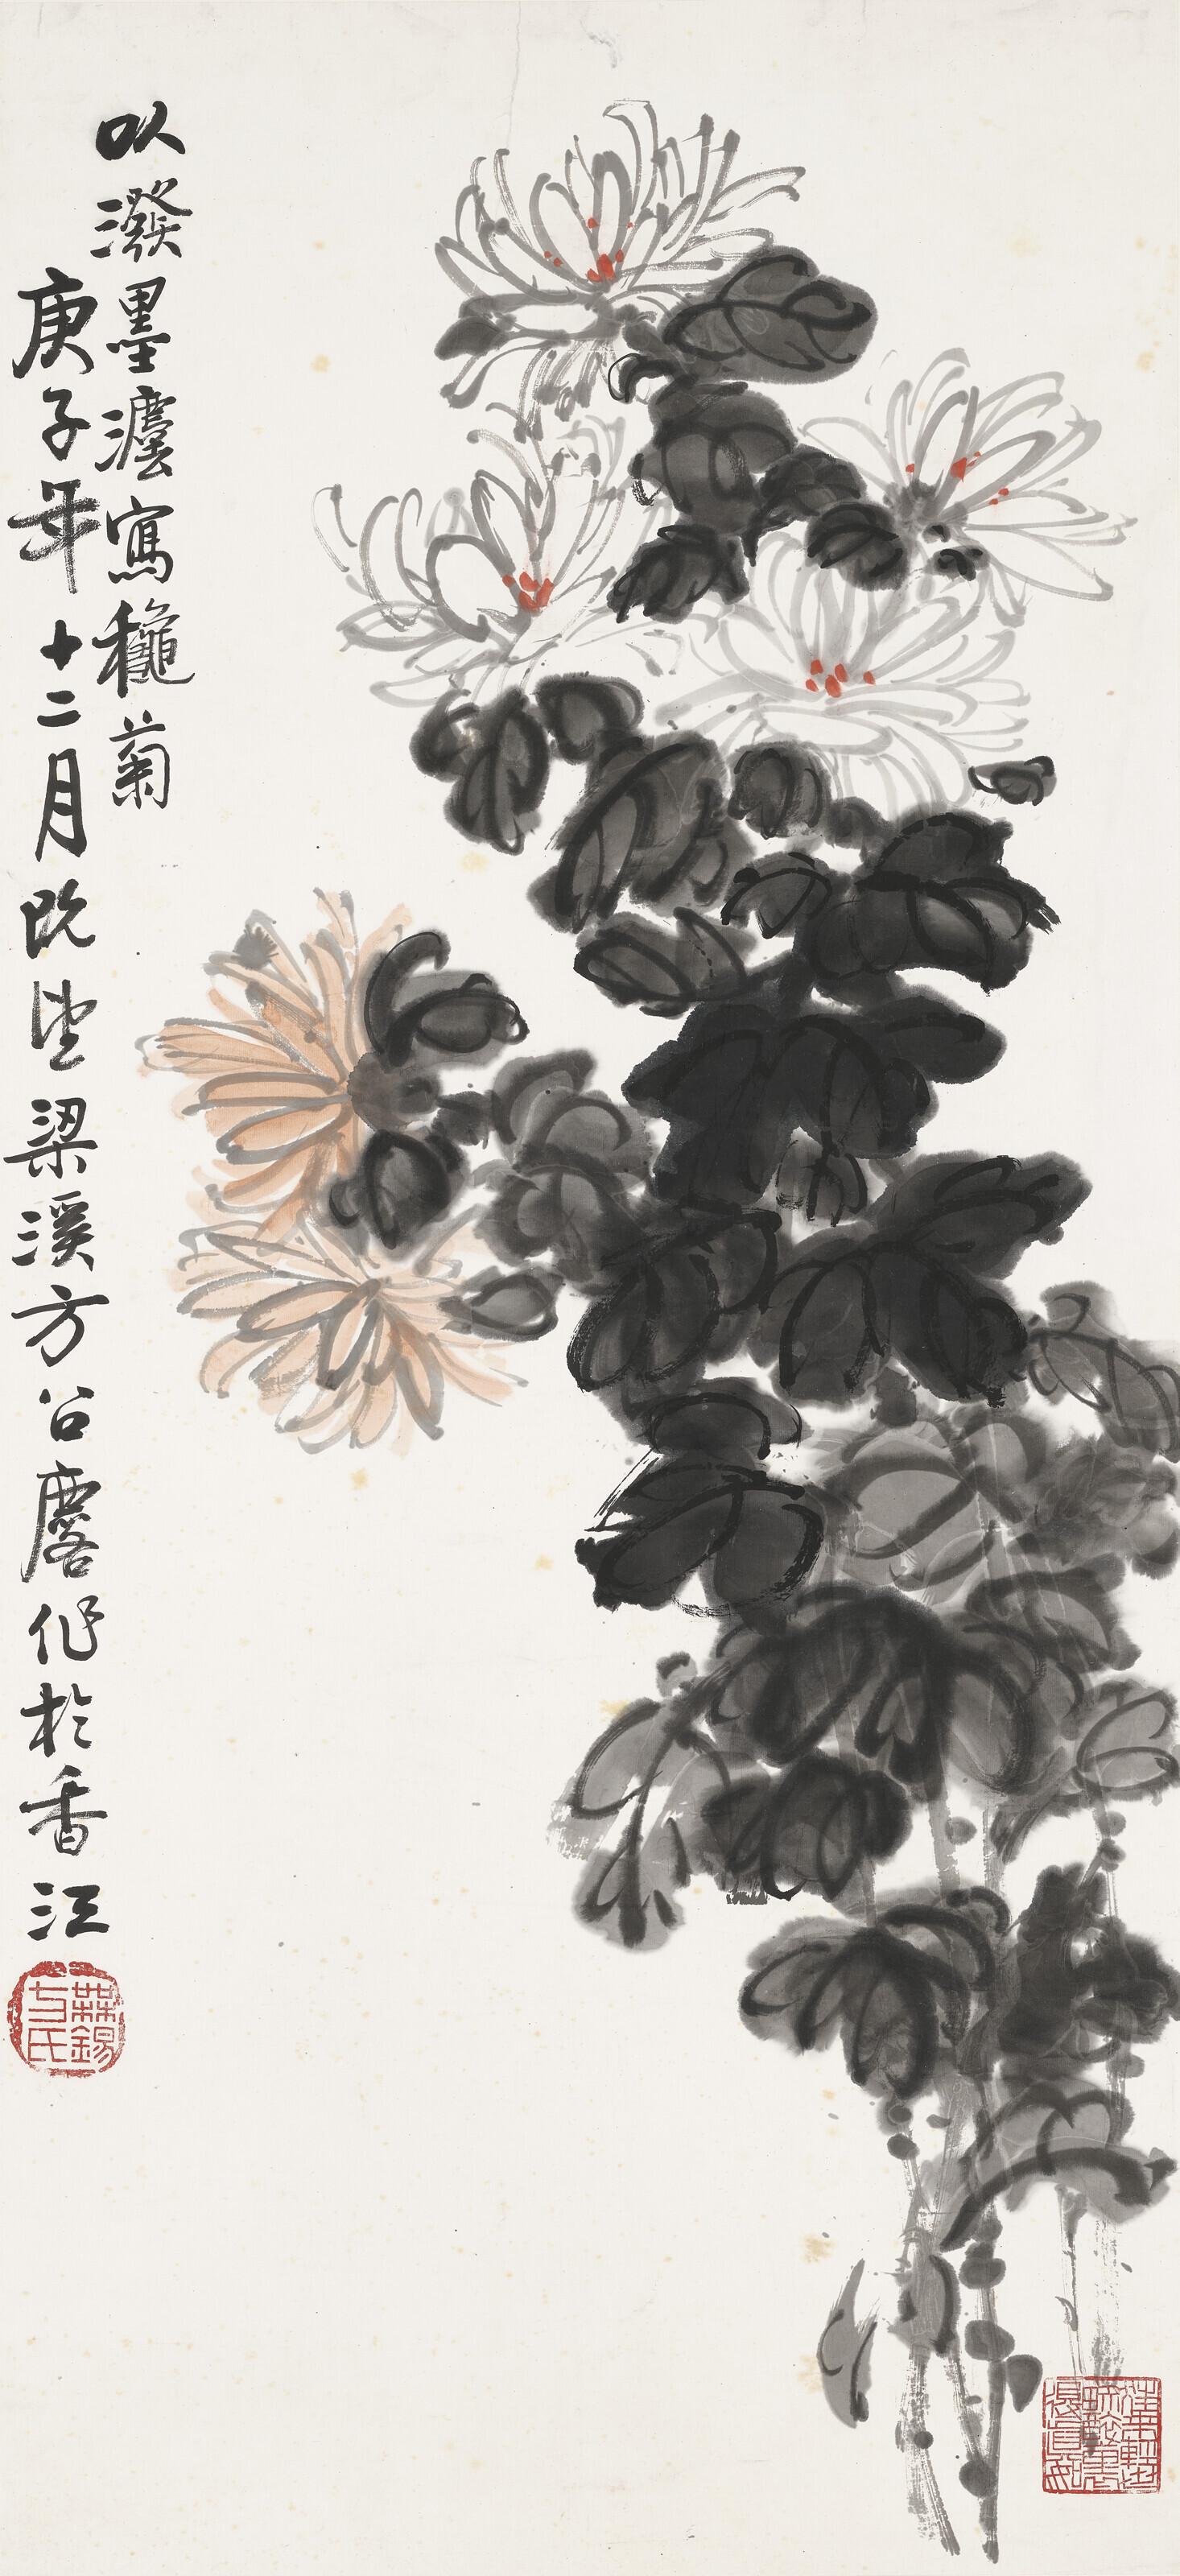 以潑墨灋寫龝菊
庚子年十二月既望梁溪方召麐作於香江
無錫方氏